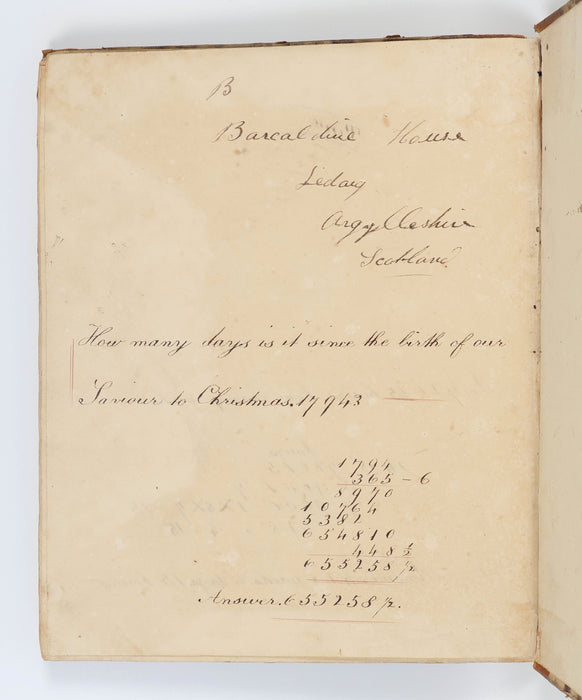 B
Barcaldine House
Ledaig
Argylleshire
Scotland
How many days is it since the birth of our
Saviour to Christmas. 1794
1794
365 – 6
8970
10764
5382
654810
448 1/2
655258 1/2
Answer. 655258 1/2.